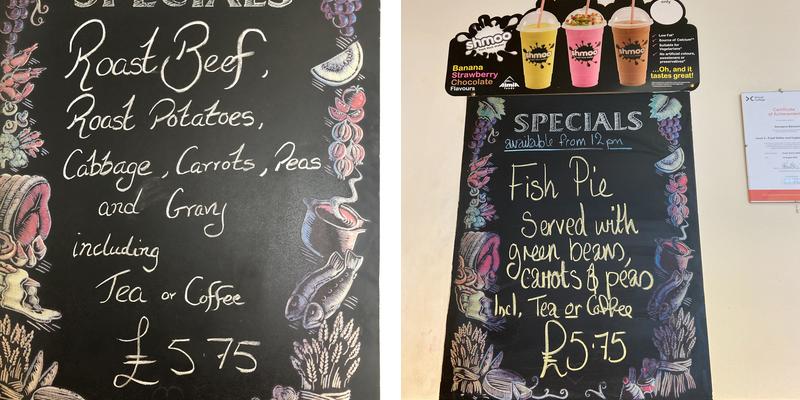 SPECIALS
Roast Beef,
Roast Potatoes,
Cabbage, Carrots, Peas
and Gravy
including
Tea or Coffee
£5.75
shmoo
Banana
Strawberry
Chocolate
Flavours
shmoo
shmoo
shmoo
only
Low Fat
Source of Calcium
Suitable for
Vegetarians
No artificial colours,
sweeteners or
preservatives
...Oh, and it
tastes great!
SPECIALS
available from 12pm
Fish Pie
Served with
green beans,
carrots & peas
Incl. Tea or Coffee
£5.75
Certificate
of Achievement